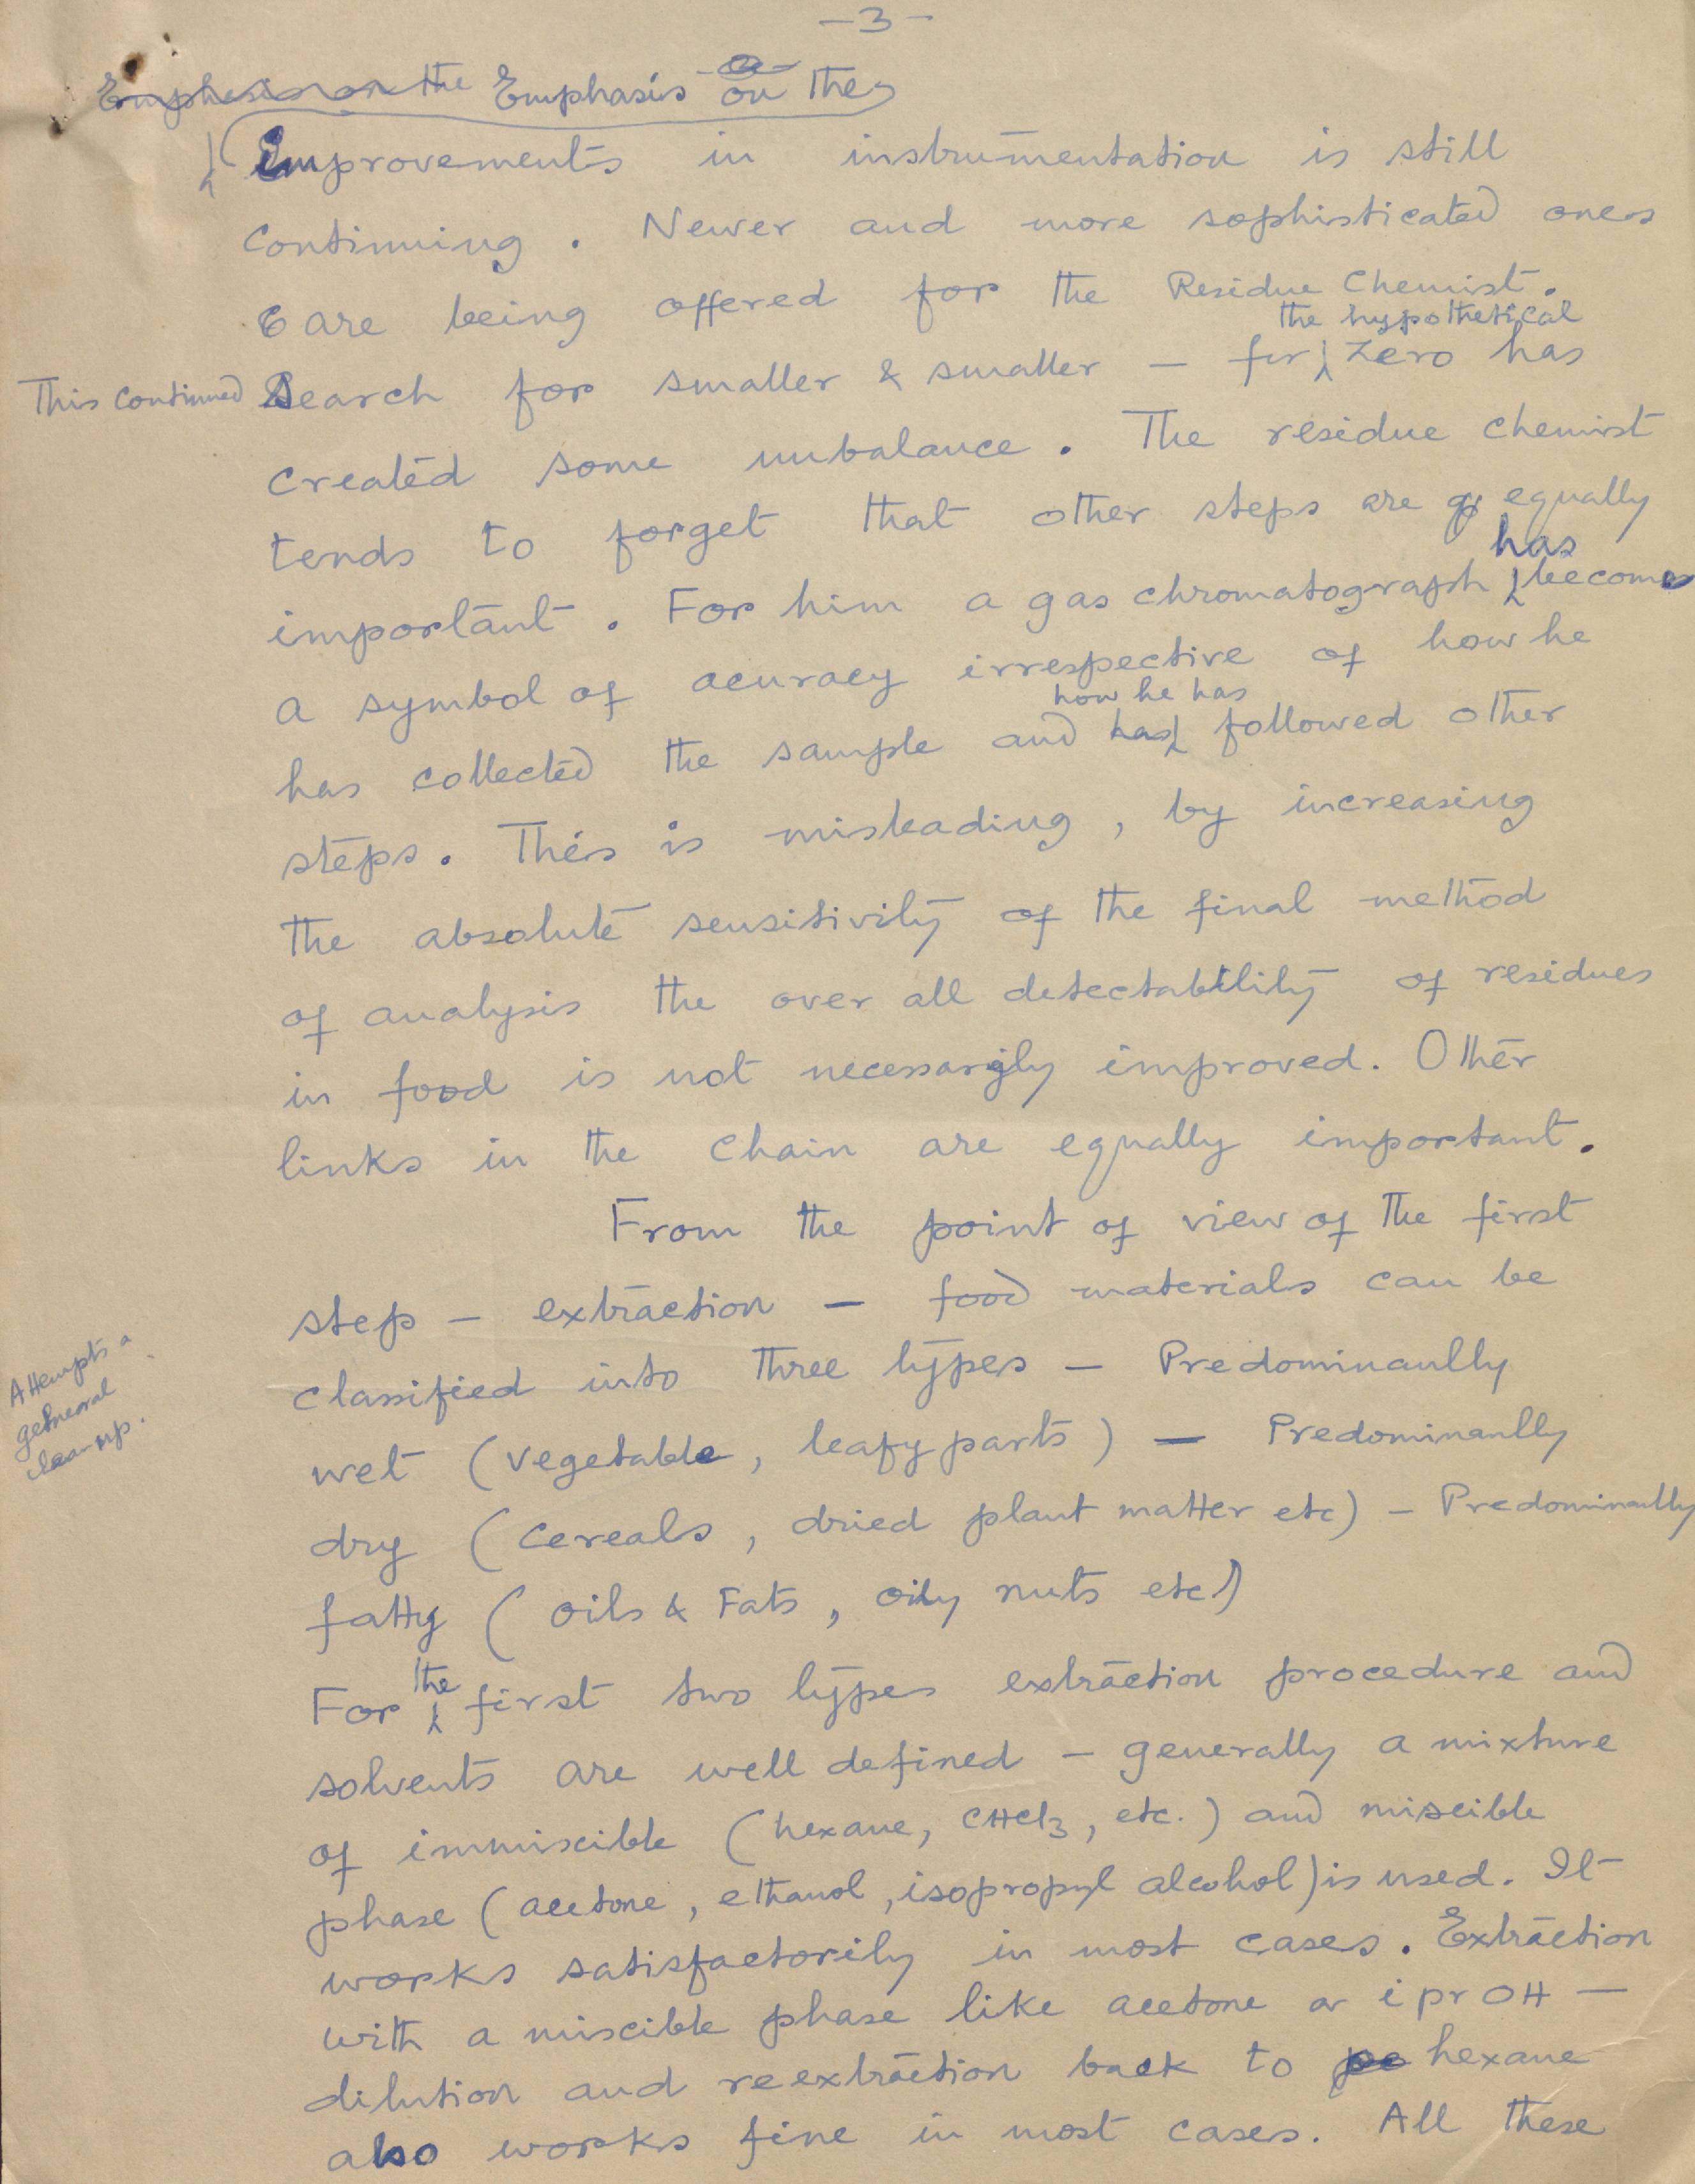 -3-
Emphasis on the Emphasis on the
improvements in instrumentation is still
continuing. Newer and more sophisticated ones
are being offered for the Residue Chemist.
the hypothetical
This continued search for smaller & smaller – for zero has
created some unbalance. The residue chemist
tends to forget that other steps are equally
has
important. For him a gas chromatograph become
a symbol of acuracy irrespective of how he
how he has
has collected the sample and has followed other
steps. This is misleading, by increasing
the absolute sensitivity of the final method
of analysis the over all detectability of residues
in food is not necessarily improved. Other
links in the chain are equally important.
From the point of view of the first
step – extraction – food materials can be
classified into three types – Predominantly
wet (vegetable, leafy parts) – Predominantly
dry (cereals, dried plant matter etc) – Predominantly
fatty (oils & Fats, oily nuts etc)
Attempts a
general
clean up.
the
For first two types extraction procedure and
solvents are well defined – generally a mixture
of immiscible (hexane, CHCl3, etc.) and miscible
phase (acetone, ethanol, isopropyl alcohol) is used. It
works satisfactorily in most cases. Extraction
with a miscible phase like acetone or i pr OH –
dilution and reextraction back to hexane
also works fine in most cases. All these